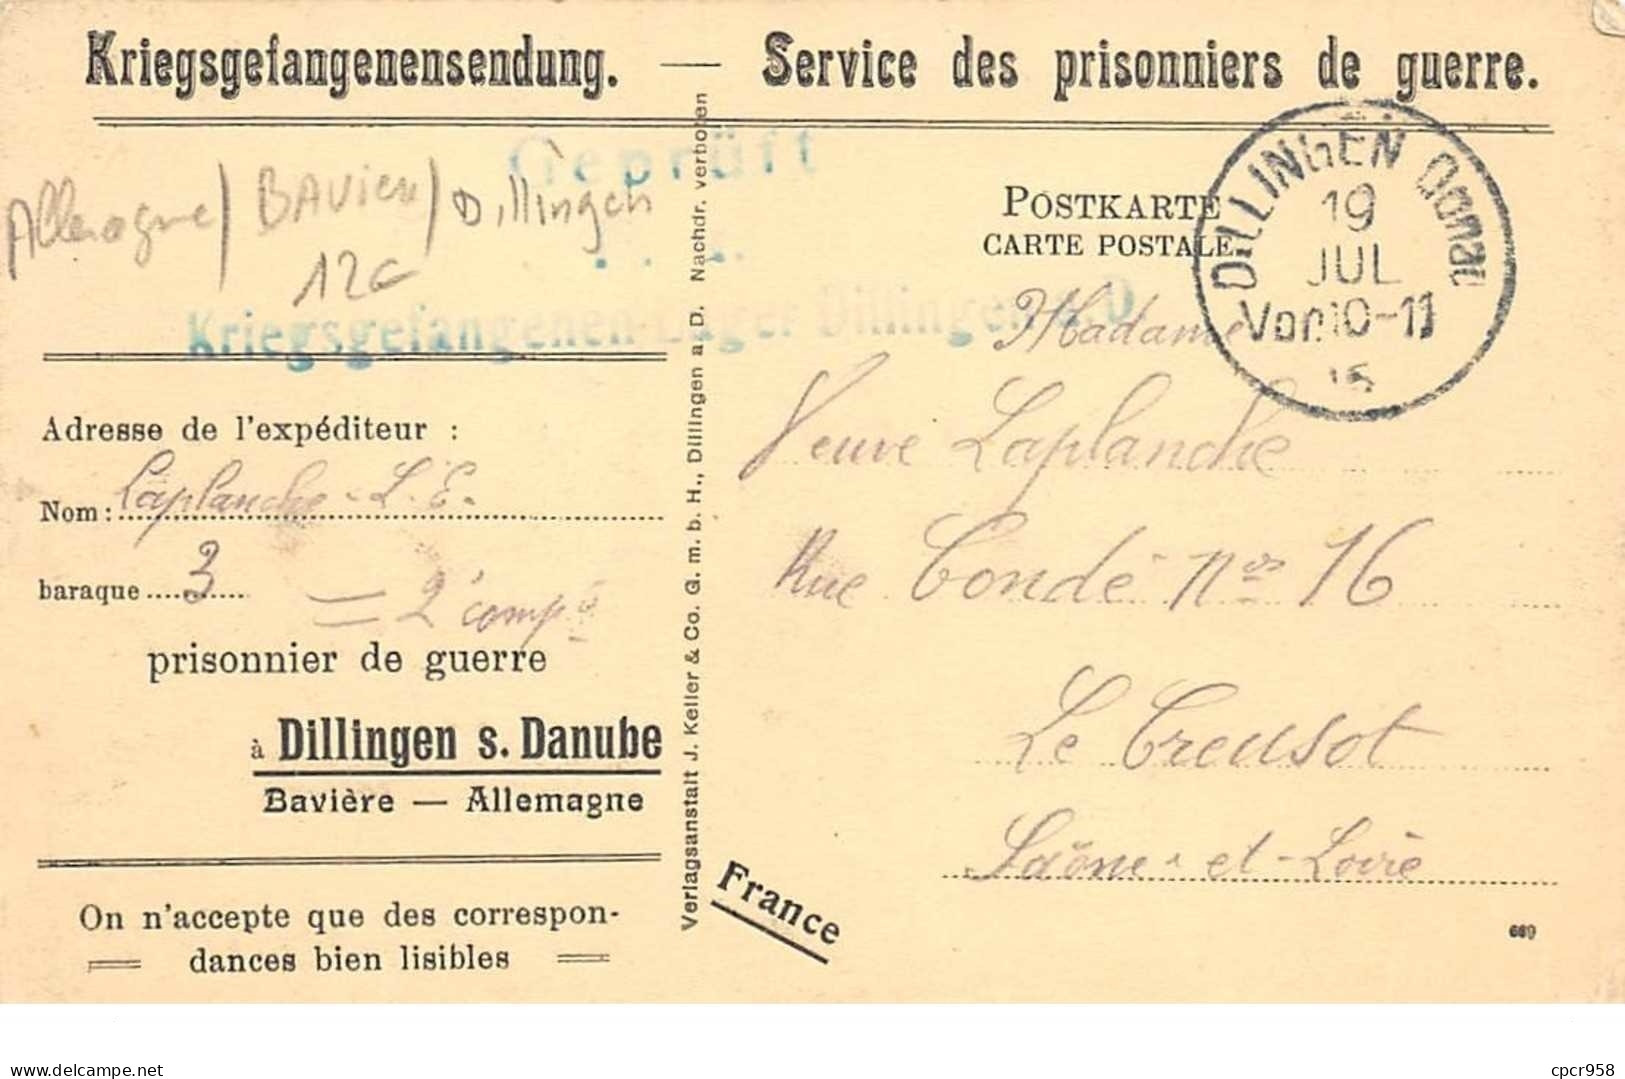 Kriegsgefangenensendung. — Service des prisonniers de guerre.
Geprüft
Allemagne / BAVIERE / Dillingen
12€
Kriegsgefangenen-Lager Dillingen a. D.
POSTKARTE
CARTE POSTALE
DILLINGEN Donau
19
JUL
Vor. 10-11
15
Adresse de l'expéditeur :
Nom: Laplanche - L. E.
baraque 3 = 2e compie
prisonnier de guerre
à Dillingen s. Danube
Bavière — Allemagne
On n'accepte que des correspon-
dances bien lisibles
Verlagsanstalt J. Keller & Co. G. m. b. H., Dillingen a. D. Nachdr. verboten
Madame
Veuve Laplanche
Rue Condé Nos 16
Le Creusot
Saône-et-Loire
France
669
cpcr958